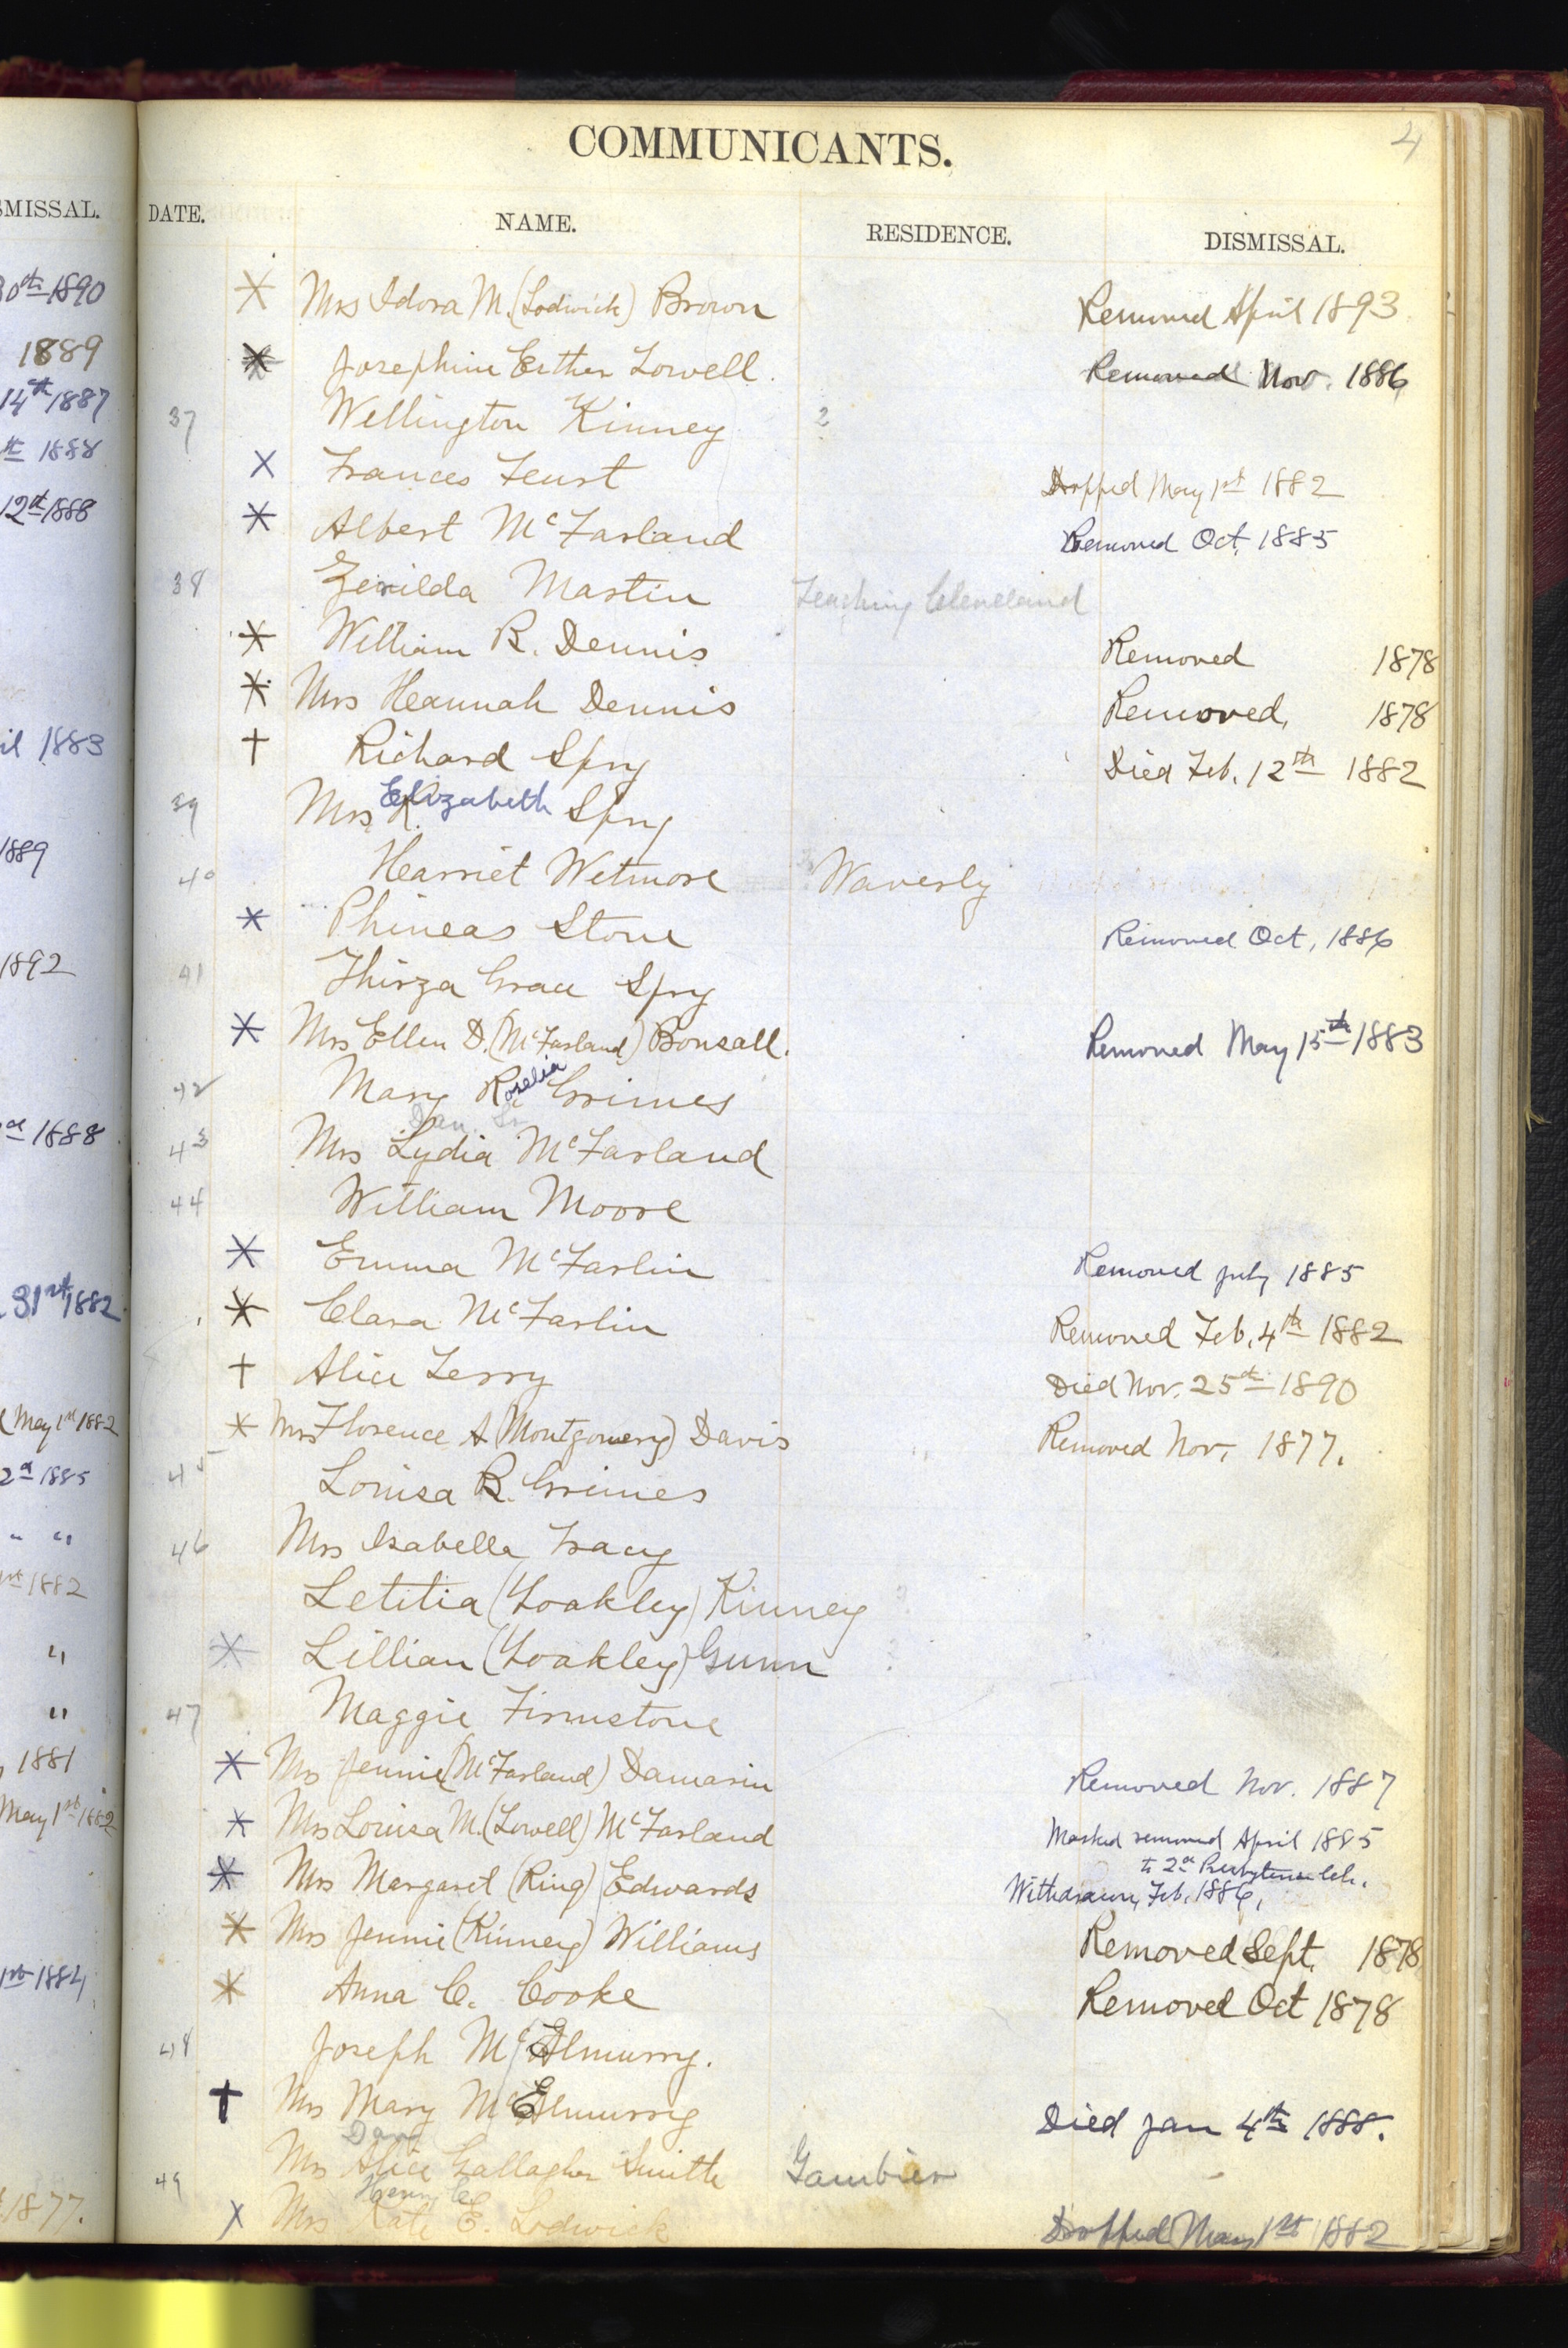 COMMUNICANTS.
4
SMISSAL. DATE. NAME. RESIDENCE. DISMISSAL.
30th 1890 Mrs Idora M. (Lodwick) Brown Removed April 1893
1889 Josephine Esther Lowell. Removed Nov. 1886
14th 1887 37 Wellington Kinney 2
1888 X Frances Feurt Dropped May 1st 1882
12th 1888 Albert McFarland Removed Oct. 1885
38 Zerilda Martin Teaching Cleveland
William R. Dennis Removed 1878
Mrs Heannah Dennis Removed, 1878
il 1883 † Richard Spry Died Feb. 12th 1882
39 Mrs R. Elizabeth Spry
1889 40 Harriet Wetmore Waverly
Phineas Stone Removed Oct, 1886
1892 41 Thirza Grace Spry
Mrs Ellen D. (McFarland) Bonsall. Removed May 15th 1883
42 Mary Roselia Grimes
Dan. Sr
1888 43 Mrs Lydia McFarland
44 William Moore
Emma McFarlin Removed July 1885
31st 1882 Clara McFarlin Removed Feb. 4th 1882
† Alice Terry Died Nov. 25th 1890
May 1st 1882 Mrs Florence A (Montgomery) Davis Removed Nov. 1877.
2d 1885 45 Louisa R. Grimes
" " 46 Mrs Isabella Tracy
1st 1882 Letitia (Yoakley) Kinney
" Lillian (Yoakley) Gunn
" 47 Maggie Firmstone
1881 Mrs Jennie (McFarland) Damarin Removed Nov. 1887
May 1st 1882 Mrs Louisa M. (Lowell) McFarland Marked removed April 1885
to 2d Presbyterian Ch.
Mrs Margaret (Ring) Edwards Withdrawn, Feb. 1886,
Mrs Jennie (Kinney) Williams Removed Sept. 1878
1st 1884 Anna C. Cooke Removed Oct 1878
48 Joseph McElmurry.
† Mrs Mary McElmurry Died Jan 4th 1888.
Dan
49 Mrs Alice Gallagher Smith Gambier
Henry C
1877. X Mrs Kate E. Lodwick Dropped May 1st 1882